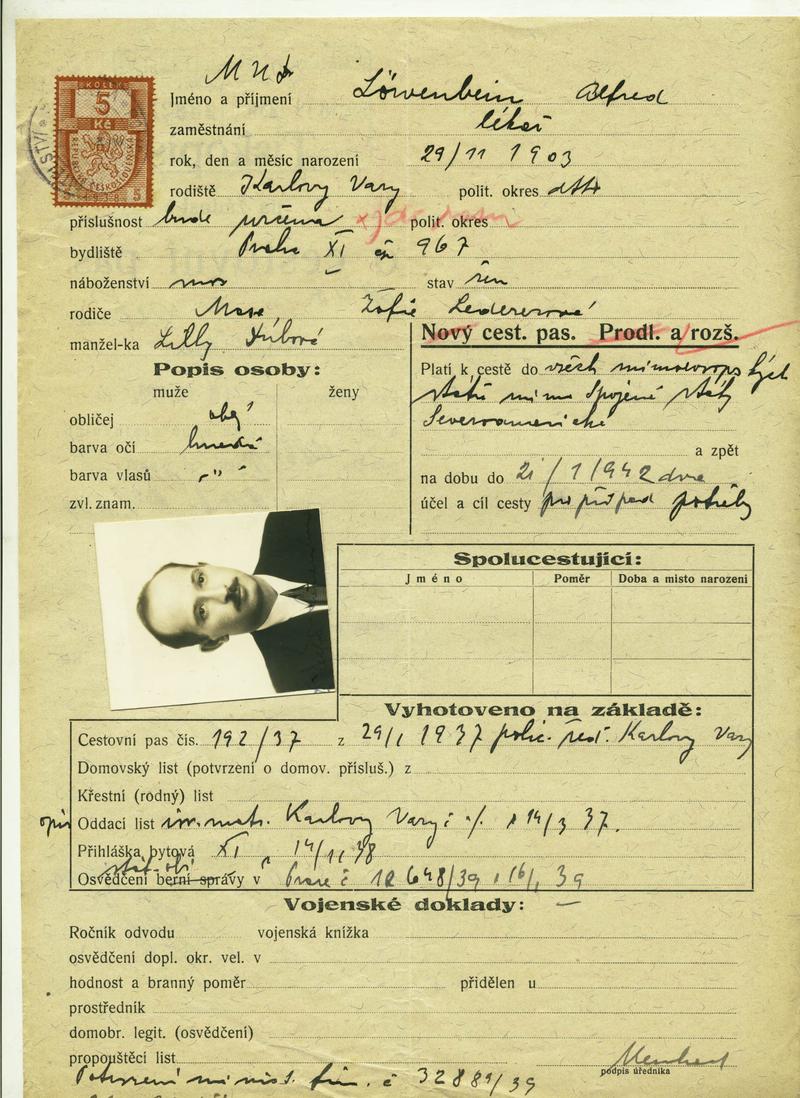 KOLEK
5
Kč
REPUBLIKA ČESKOSLOVENSKÁ
MUDr
Jméno a příjmení Löwenbein Alfred
zaměstnání lékař
rok, den a měsíc narození 29/11 1903
rodiště Karlovy Vary polit. okres dtto
příslušnost bude určena polit. okres
bydliště Praha XI čp 967
náboženství stav žen
rodiče Max, Žofie Ledererová
manžel-ka Lilly
Nový cest. pas. Prodl. a rozš.
Popis osoby:
muže ženy
obličej obl
barva očí hnědá
barva vlasů -"-
zvl. znam.
Platí k cestě do všech mimoevropských
států mimo Spojené státy
Severoamerické
a zpět
na dobu do 21/1/1942 dva
účel a cíl cesty pro případ potřeby
Spolucestující:
Jméno Poměr Doba a místo narození
Vyhotoveno na základě:
Cestovní pas čís. 192/37 z 29/1 1937 polic. řed. Karlovy Vary
Domovský list (potvrzení o domov. přísluš.) z
Křestní (rodný) list
opis Oddací list izr. matr. Karlovy Vary 14/3 37.
Přihláška bytová XI 14/11 38
stát. ob.
Osvědčení berní správy v Praze č 12648/39 16/1 39
Vojenské doklady:
Ročník odvodu vojenská knížka
osvědčení dopl. okr. vel. v
hodnost a branný poměr přidělen u
prostředník
domobr. legit. (osvědčení)
propouštěcí list
podpis úředníka
Potvrzení minist. fin. č 32881/39